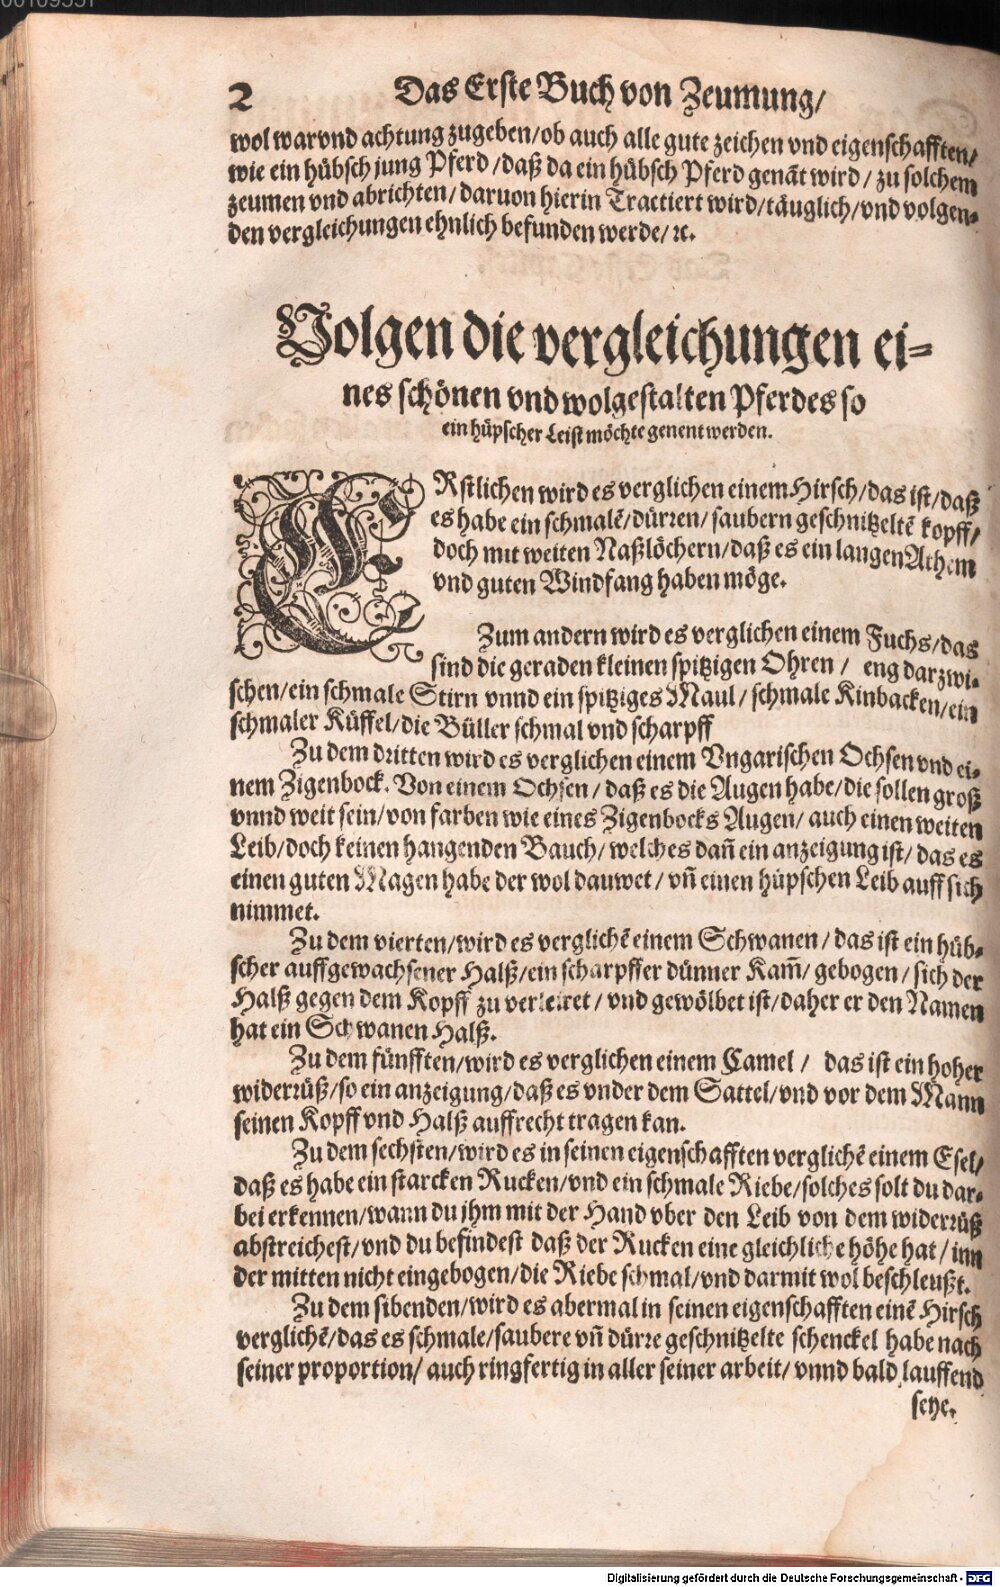 00109557
2 Das Erste Buch von Zeumung/
wol war vnd achtung zugeben/ob auch alle gute zeichen vnd eigenschafften/
wie ein hübsch jung Pferd/daß da ein hübsch Pferd genāt wird/zu solchem
zeumen vnd abrichten/daruon hierin Tractiert wird/täuglich/vnd volgen-
den vergleichungen ehnlich befunden werde/ꝛc.
Volgen die vergleichungen ei-
nes schönen vnd wolgestalten Pferdes so
ein hüpscher Leist möchte genent werden.
ERstlichen wird es verglichen einem Hirsch/das ist/daß
es habe ein schmalē/dürren/saubern geschnitzeltē kopff/
doch mit weiten Naßlöchern/daß es ein langen Athem
vnd guten Windfang haben möge.
Zum andern wird es verglichen einem Fuchs/das
sind die geraden kleinen spitzigen Ohren/ eng darzwi-
schen/ein schmale Stirn vnnd ein spitziges Maul/schmale Kinbacken/ein
schmaler Küffel/die Büller schmal vnd scharpff
Zu dem dritten wird es verglichen einem Vngarischen Ochsen vnd ei-
nem Zigenbock. Von einem Ochsen/daß es die Augen habe/die sollen groß
vnnd weit sein/von farben wie eines Zigenbocks Augen/auch einen weiten
Leib/doch keinen hangenden Bauch/welches dañ ein anzeigung ist/das es
einen guten Magen habe der wol dauwet/vñ einen hüpschen Leib auff sich
nimmet.
Zu dem vierten/wird es verglichē einem Schwanen/das ist ein hüb-
scher auffgewachsener Halß/ein scharpffer dünner Kam̃/gebogen/sich der
Halß gegen dem Kopff zu verleiret/vnd gewölbet ist/daher er den Namen
hat ein Schwanen Halß.
Zu dem fünfften/wird es verglichen einem Camel/ das ist ein hoher
widerrüß/so ein anzeigung/daß es vnder dem Sattel/vnd vor dem Mann
seinen Kopff vnd Halß auffrecht tragen kan.
Zu dem sechsten/wird es in seinen eigenschafften verglichē einem Esel/
daß es habe ein starcken Rucken/vnd ein schmale Riebe/solches solt du dar-
bei erkennen/wann du jhm mit der Hand vber den Leib von dem widerrüß
abstreichest/vnd du befindest daß der Rucken eine gleichliche höhe hat/inn
der mitten nicht eingebogen/die Riebe schmal/vnd darmit wol beschleußt.
Zu dem sibenden/wird es abermal in seinen eigenschafften einē Hirsch
verglichē/das es schmale/saubere vñ dürre geschnitzelte schenckel habe nach
seiner proportion/auch ringfertig in aller seiner arbeit/vnnd bald lauffend
seye.
Digitalisierung gefördert durch die Deutsche Forschungsgemeinschaft - DFG